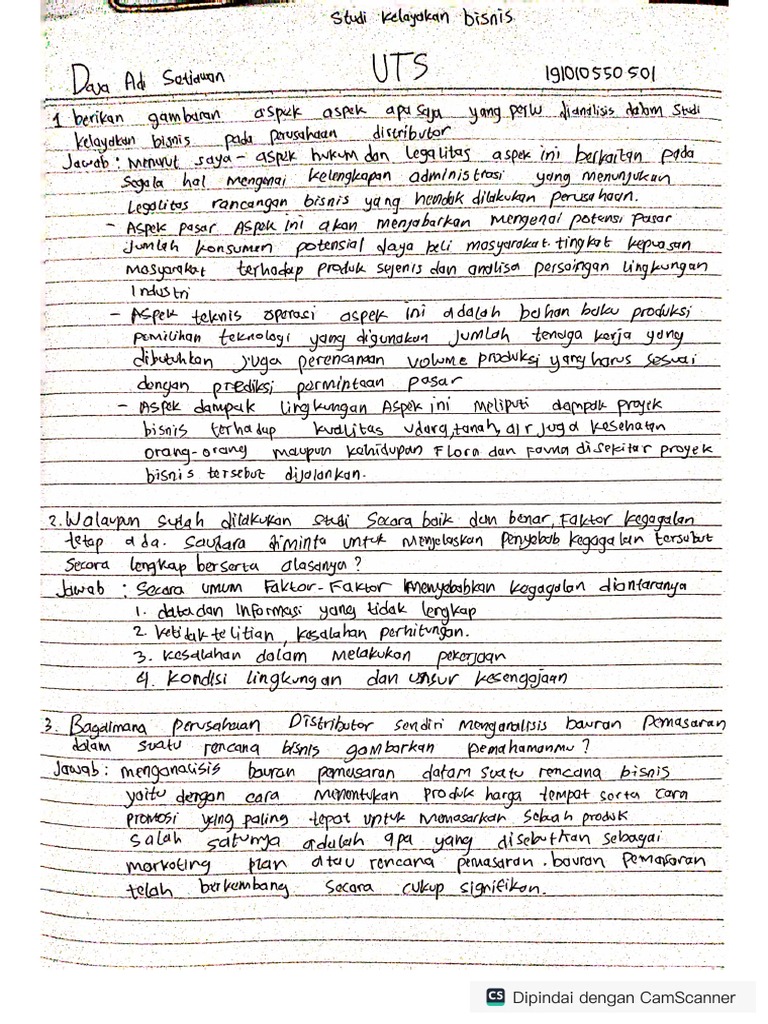 Studi Kelayakan bisnis
UTS
Dava Adi Setiawan 191010550501
1 berikan gambaran aspek aspek apa saja yang perlu dianalisis dalam studi
kelayakan bisnis pada perusahaan distributor
Jawab : Menurut saya - aspek hukum dan legalitas aspek ini berkaitan pada
segala hal mengenai kelengkapan administrasi yang menunjukan
legalitas rancangan bisnis yang hendak dilakukan perusahaan.
- Aspek pasar Aspek ini akan menjabarkan mengenai potensi pasar
jumlah konsumen potensial daya beli masyarakat. tingkat kepuasan
masyarakat terhadap produk sejenis dan analisa persaingan lingkungan
Industri
- Aspek teknis operasi aspek ini adalah bahan baku produksi
pemilihan teknologi yang digunakan jumlah tenaga kerja yang
dibutuhkan juga perencanaan volume produksi yang harus sesuai
dengan prediksi permintaan pasar
- Aspek dampak lingkungan Aspek ini meliputi dampak proyek
bisnis terhadap kualitas udara, tanah, air juga kesehatan
orang-orang maupun kehidupan Flora dan Fauna disekitar proyek
bisnis tersebut dijalankan.
2. Walaupun sudah dilakukan studi secara baik dan benar, Faktor kegagalan
tetap ada. Saudara diminta untuk menjelaskan Penyebab kegagalan tersebut
secara lengkap berserta alasanya ?
Jawab : Secara umum Faktor-Faktor Menyebabkan kegagalan diantaranya
1. data dan Informasi yang tidak lengkap
2. ketidak telitian, kesalahan perhitungan.
3. kesalahan dalam melakukan pekerjaan
4. kondisi lingkungan dan unsur kesengajaan
3. Bagaimana perusahaan Distributor sendiri menganalisis bauran pemasaran
dalam suatu rencana bisnis gambarkan pemahamanmu ?
Jawab : menganalisis bauran pemasaran dalam suatu rencana bisnis
yaitu dengan cara menentukan produk harga tempat serta cara
promosi yang paling tepat untuk memasarkan sebuah produk
salah satunya adalah apa yang disebutkan sebagai
marketing plan atau rencana pemasaran. bauran pemasaran
telah berkembang secara cukup signifikan.
CS Dipindai dengan CamScanner